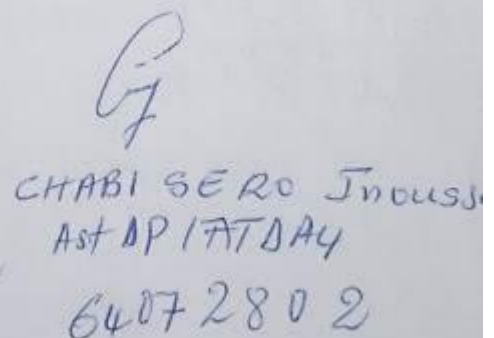 CHABI SERO Inouss
Ast DP/ATDAY
64072802